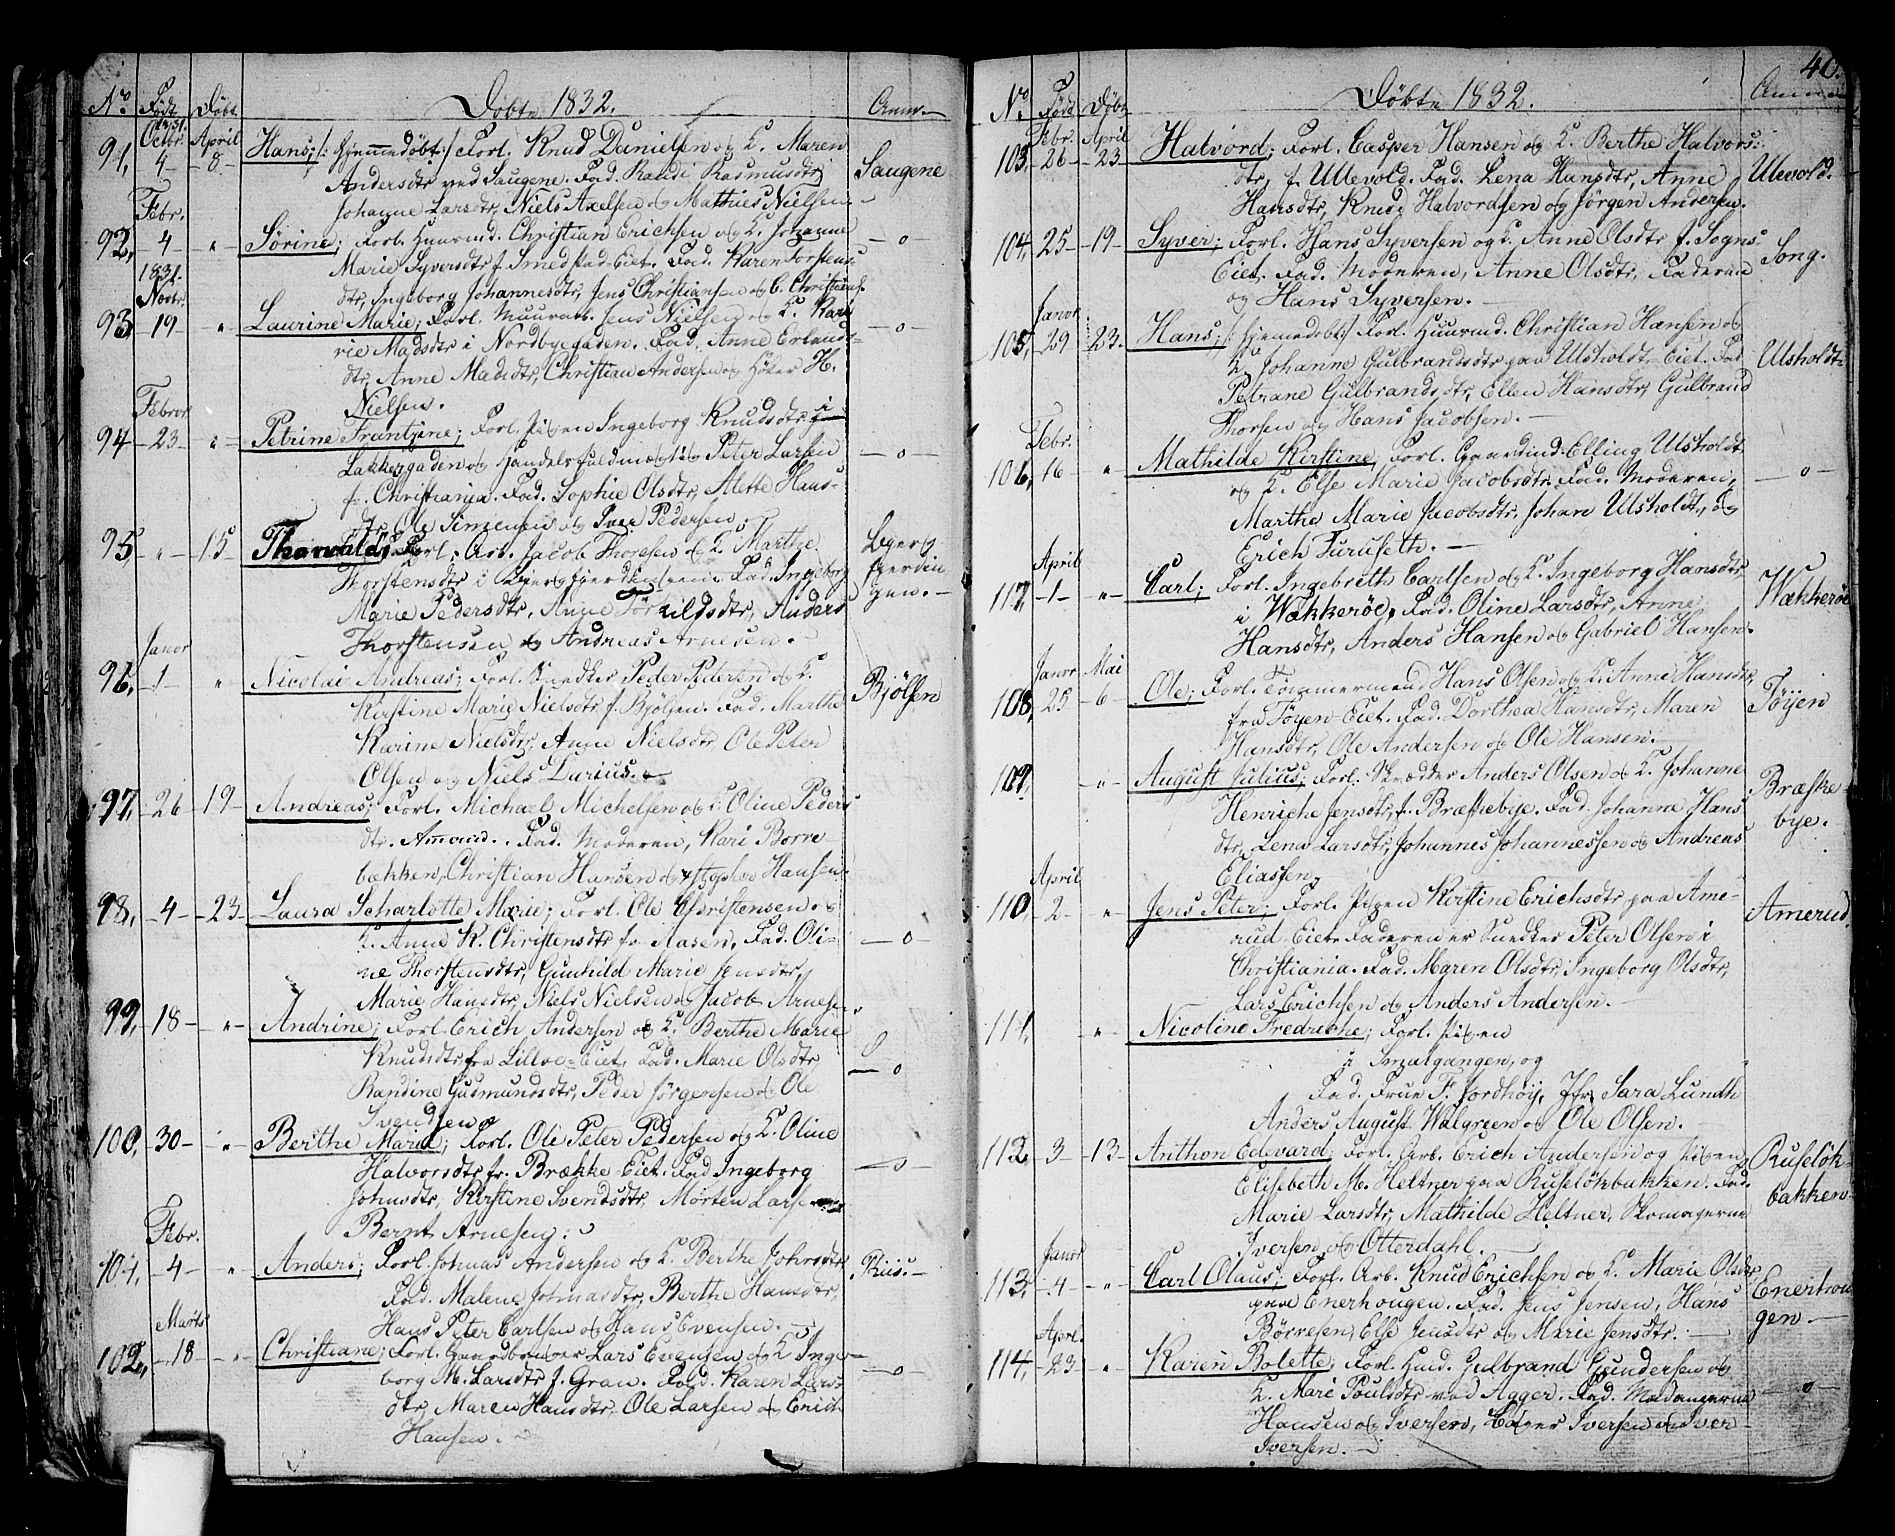 No Født Døbt Døbte 1832. Anm.
1831.
Octbr. April
91, 4 - 8 Hans; /: hjemmedøbt :/ Forl. Knud Danielsen og K. Maren
Andersdtr ved Saugene. Fad. Randi Rasmusdtr Saugene
Johanne Larsdtr, Niels Axelsen og Mathies Nielsen.
Febr.
92, 4 " Sørine; Forl. Huusmd. Christian Erichsen og K. Johanne - o -
Marie Syversdtr f. Smedstad-Eiet. Fad. Karen Torstens
dtr, Ingeborg Johannesdtr, Jens Christiansen og C. Christians.
1831.
Novbr.
93 19 - " Laurine Marie; Forl. Muurarb. Jens Nielsen og K. Ka - o -
rie Madsdtr i Nordbyegaden. Fad. Anne Erlands
dtr, Anne Madsdtr, Christian Andersen og Høker H.
Nielsen.
Febror
94 - 23 - " Petrine Frantzine; Forl. Pigen Ingeborg Knudsdtr i
Lakkegaden og Handelsfuldmægtig Peter Larsen - o -
f. Christiania. Fad. Sophie Olsdtr, Mette Hans-
dtr, Ole Simensen og Iver Pedersen
95, - " - 15 - Thorvald; Forl. Arb. Jacob Thoresen og K. Marthe Leyer
Thorstensdtr i Fad. Ingeborg fjerdin
Marie Pedersdtr, Anne Anders gen. -
Thorstensen og Andreas Arnesen. -
Janor
96, - 1 - " Nicolai Andreas; Forl. Snedker Peder Pedersen og K.
Kirstine Marie Nielsdtr f. Bjølsen. Fad. Marthe Bjølsen
Karine Nielsdtr, Anne Nielsdtr Ole Peter
Olsen og Niels Darius.
97, - 26 - 19 - Andreas; Forl. Michael Michelsen og K. Oline Peders
dtr. Fad. Moderen, Kari Borre
bækken, Christian Hansen og Hansen.
98, - 4 - 23 Laura Scharlotte Marie; Forl. Ole Christensen og
K. Anne K. Christensdtr fr. Aasen. Fad. Oli- - o -
ne Thorstensdtr, Gunhild Marie Jensdtr,
Marie Hansdtr, Niels Nielsen og Jacob Arnesen
99, - 18 - " Andrine; Forl. Erich Andersen og K. Berthe Marie
Knudsdtr fra Lilloe-Eiet. Fad. Marie Olsdtr, - o
Randine Gudmundsdtr, Peder Jørgensen og Ole
Svendsen
100, 30 - " Berthe Marie; Forl. Ole Peter Pedersen og K. Oline
Halvorsdtr fr. Brække-Eiet. Fad Ingeborg - o -
Johnsdtr, Kirstine Svendsdtr, Morten Larsen
Bernt Arnesen;
Febr.
101, - 4 - " Anders; Forl. Johnas Andersen og K. Berthe Johnsdtr Riis. -
Fad. Malene Johnasdtr, Berthe Hansdtr,
Hans Peter Carlsen og Hans Evensen.
Marts
102, - 18 - " - Christiane; Forl. Gaardbruger Lars Evensen og K Inge
borg M. Larsdtr f. Grav. Fad. Karen Lars- - o -
dtr, Maren Hansdtr, Ole Larsen og Erich
Hansen.
40.
No Fød Døbt Døbte 1832. Anm
Febr. April
103, 26 - 23 Halvord; Forl. Casper Hansen og K. Berthe Halvors
dtr, f. Ullevold. Fad. Lena Hansdtr, Anne Ulevold.
Hansdtr, Knud Halvordsen og Jørgen Andersen.
104, 25 - 19 - Syver; Forl. Hans Syversen og K. Anne Olsdtr f. Sogns
Eiet. Fad. Moderen, Anne Olsdtr, Faderen Song.
og Hans Syversen. -
Janor.
105, 29 23. Hans; /: hjemmedøbt :/ Forl. Huusmd. Christian Hansen og
K. Johanne Gulbrandsdtr paa Ulsholdt-Eiet. Fad Ulsholdt-
Petrane Gulbrandsdtr, Ellen Hansdtr, Gulbrand
Thorsen og Hans Jacobsen. -
Febr.
106, 16 " Mathilde Kirstine; Forl. Gaardmd. Elling Ulsholdt
og K. Else Marie Jacobsdtr. Fad. Moderen, - o -
Marthe Marie Jacobsdtr, Johan Ulsholdt, og
Erich Furuseth. -
April
117, - 1 - " - Carl; Forl. Ingebreth Carlsen og K. Ingeborg Hansdtr,
i Wækkerøe. Fad. Oline Larsdtr, Anne Wækkerøe
Hansdtr, Anders Hansen og Gabriel Hansen.
Janor Mai
108, 25 - 6 - Ole; Forl. Tømmermand Hans Olsen og K. Anne Hansdtr,
fra Tøyen-Eiet. Fad. Dorthea Hansdtr, Maren Tøyen
Hansdtr, Ole Andersen og Ole Hansen.
109, - " - August Julius; Forl. Skrædder Anders Olsen og K. Johanne
Henriche Jensdtr, f. Bræskebye. Fad. Johanna Hans Bræske
dtr, Lena Larsdtr, Johannes Johannessen og Andreas bye.
Eliassen.
April
110, 2 - " Jens Peter; Forl. Pigen Kirstine Erichsdtr paa Ame-
rud-Eiet. Faderen er Snedker Peter Olsen i Amerud
Christiania. Fad. Maren Olsdtr, Ingeborg Olsdtr,
Lars Erichsen og Anders Andersen. -
111, - " - Nicoline Fredriche; Forl. Pigen
i Smalgangen, og
Fad. Frue F. Jordhøy, Jfr. Sara Lundh
Anders August Walgreen og Ole Olsen.
112, 3 - 13 - Anthon Edevard; Forl. Arb. Erich Andersen og Pigen Ruseløk-
Elisebeth M. Heltner paa Ruseløkbakken. Fad. bakken.
Marie Larsdtr, Mathilde Heltner, Skomagerne
Iversen og Otterdahl.
Janor
113, - 4 - " - Carl Olaus; Forl. Arb. Knud Erichsen og K. Marie Olsdtr
paa Enerhougen. Fad. Jens Jensen, Hans Enerhou
Børresen, Else Jensdtr og Marie Jensdtr. gen.
Aprl.
114, - 23 " Karen Bolette; Forl. Hmd. Gulbrand Gundersen og
K. Mari Poulsdtr ved Agger. Fad. Madamerne - o
Hansen og Iversen, Iversen og Iver
Iversen.